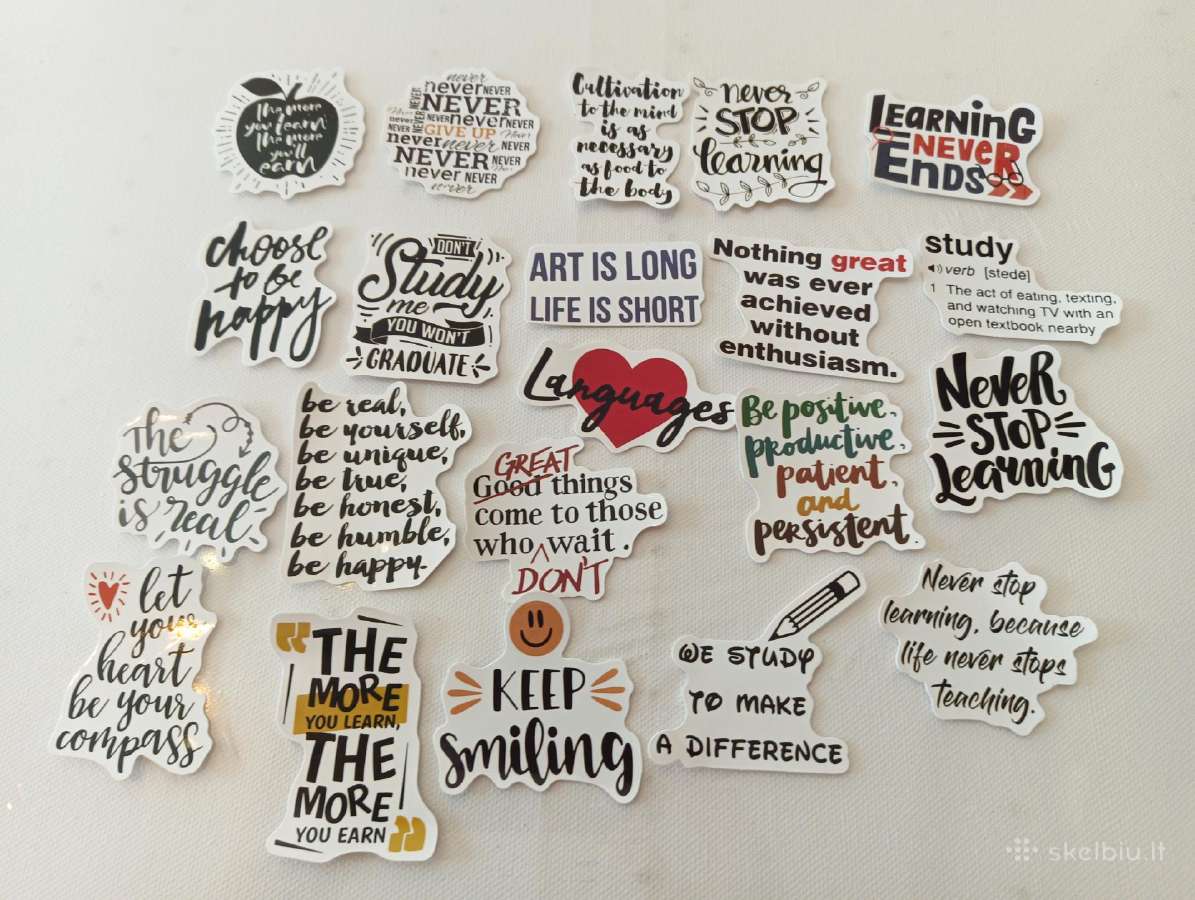 the more
you learn
the more
you'll
earn
never
never NEVER
NEVER
never NEVER
GIVE UP
never never NEVER
NEVER
NEVER never NEVER
never
Cultivation
to the mind
is as
necessary
as food to
the body
never
STOP
learning
LEARNinG
NEVER
ENDS
choose
to be
happy
DON'T
Study
me
YOU WON'T
GRADUATE
ART IS LONG
LIFE IS SHORT
Nothing great
was ever
achieved
without
enthusiasm.
study
verb [stede]
1 The act of eating, texting,
and watching TV with an
open textbook nearby
Languages
The
Struggle
is real
be real,
be yourself,
be unique,
be true,
be honest,
be humble,
be happy.
GREAT
Good things
come to those
who wait.
DON'T
Be positive,
productive,
patient,
and
persistent.
NeveR
STOP
LearninG
let
your
heart
be your
compass
"THE
MORE
YOU LEARN,
THE
MORE
YOU EARN"
KEEP
smiling
WE STUDY
TO MAKE
A DIFFERENCE
Never stop
learning, because
life never stops
teaching.
skelbiu.lt